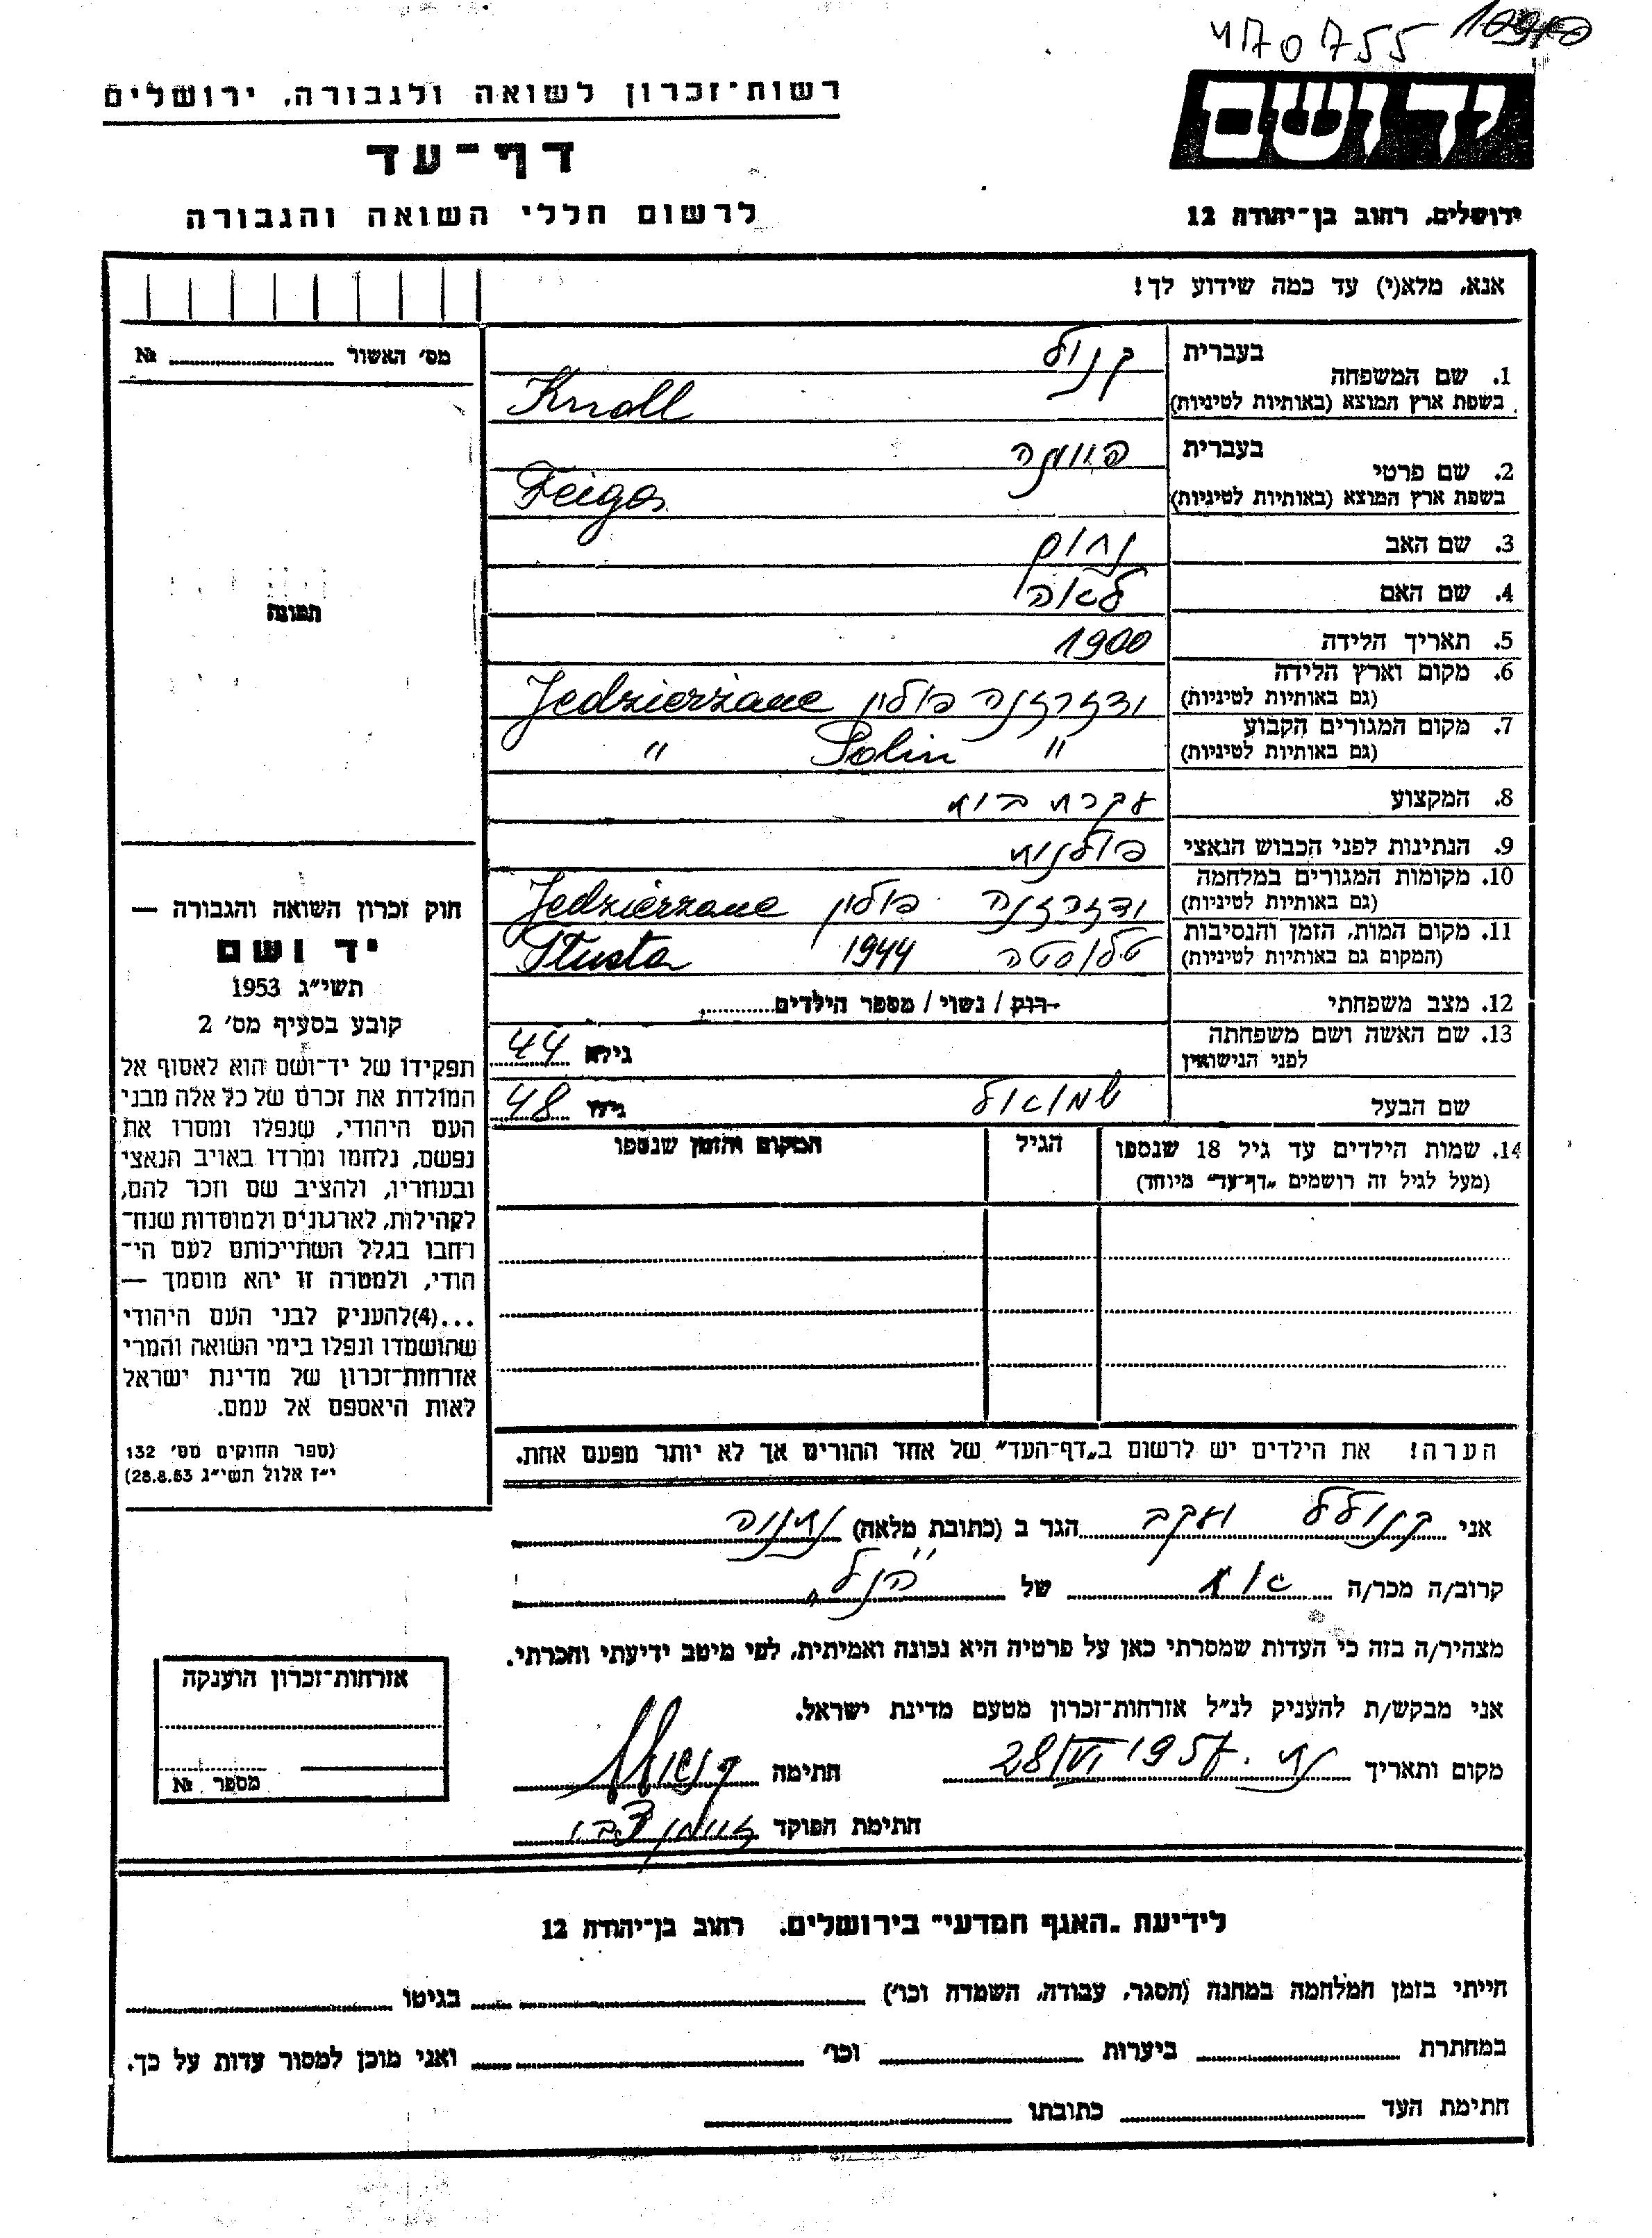 470755
רשות־זכרון לשואה ולגבורה, ירושלים
יד ושם
דף־עד
לרשום חללי השואה והגבורה
ירושלים, רחוב בן־יהודה 12
אנא, מלא(י) עד כמה שידוע לך!
מס׳ האשור № 
בעברית קנול
1. שם המשפחה
בשפת ארץ המוצא (באותיות לטיניות) Knoll
בעברית פייגה
2. שם פרטי
בשפת ארץ המוצא (באותיות לטיניות) Feiga
3. שם האב נחום
4. שם האם לאה
5. תאריך הלידה 1900
6. מקום וארץ הלידה
(גם באותיות לטיניות) פולין Jedzierzane
7. מקום המגורים הקבוע
(גם באותיות לטיניות) " Polin "
8. המקצוע עקרת בית
9. הנתינות לפני הכבוש הנאצי פולנית
10. מקומות המגורים במלחמה
(גם באותיות לטיניות) פולין Jedzierzane
11. מקום המות, הזמן והנסיבות
(המקום גם באותיות לטיניות) טלוסטה 1944 Tlusta
12. מצב משפחתי רוק / נשוי / מספר הילדים
13. שם האשה ושם משפחתה
לפני הנישואין גילא 44
שם הבעל שמואל גילו 48
14. שמות הילדים עד גיל 18 שנספו הגיל המקום והזמן שנספו
(מעל לגיל זה רושמים "דף־עד" מיוחד)
הערה! את הילדים יש לרשום ב"דף־העד" של אחד ההורים אך לא יותר מפעם אחת.
תמונה
חוק זכרון השואה והגבורה —
יד ושם
תשי״ג 1953
קובע בסעיף מס׳ 2
תפקידו של יד־ושם הוא לאסוף אל
המולדת את זכרם של כל אלה מבני
העם היהודי, שנפלו ומסרו את
נפשם, נלחמו ומרדו באויב הנאצי
ובעוזריו, ולהציב שם וזכר להם,
לקהילות, לארגונים ולמוסדות שנח־
רחבו בגלל השתייכותם לעם הי־
הודי, ולמטרה זו יהא מוסמך —
...(4)להעניק לבני העם היהודי
שהושמדו ונפלו בימי השואה והמרי
אזרחות־זכרון של מדינת ישראל
לאות היאספם אל עמם.
(ספר החוקים מס׳ 132
י״ז אלול תשי״ג 28.8.53)
אני קנולל יעקב הגר ב (כתובת מלאה) נתניה
קרוב/ה מכר/ה אח של הנ"ל
מצהיר/ה בזה כי העדות שמסרתי כאן על פרטיה היא נכונה ואמיתית, לפי מיטב ידיעתי והכרתי.
אני מבקש/ת להעניק לנ״ל אזרחות־זכרון מטעם מדינת ישראל.
מקום ותאריך 28/VI 1957 חתימה
חתימת הפוקד
אזרחות־זכרון הוענקה
מספר №
לידיעת "האגף המדעי" בירושלים, רחוב בן־יהודה 12
הייתי בזמן המלחמה במחנה (הסגר, עבודה, השמדה וכו׳) בגיטו
במחתרת ביערות וכו׳ ואני מוכן למסור עדות על כך.
חתימת העד כתובתו